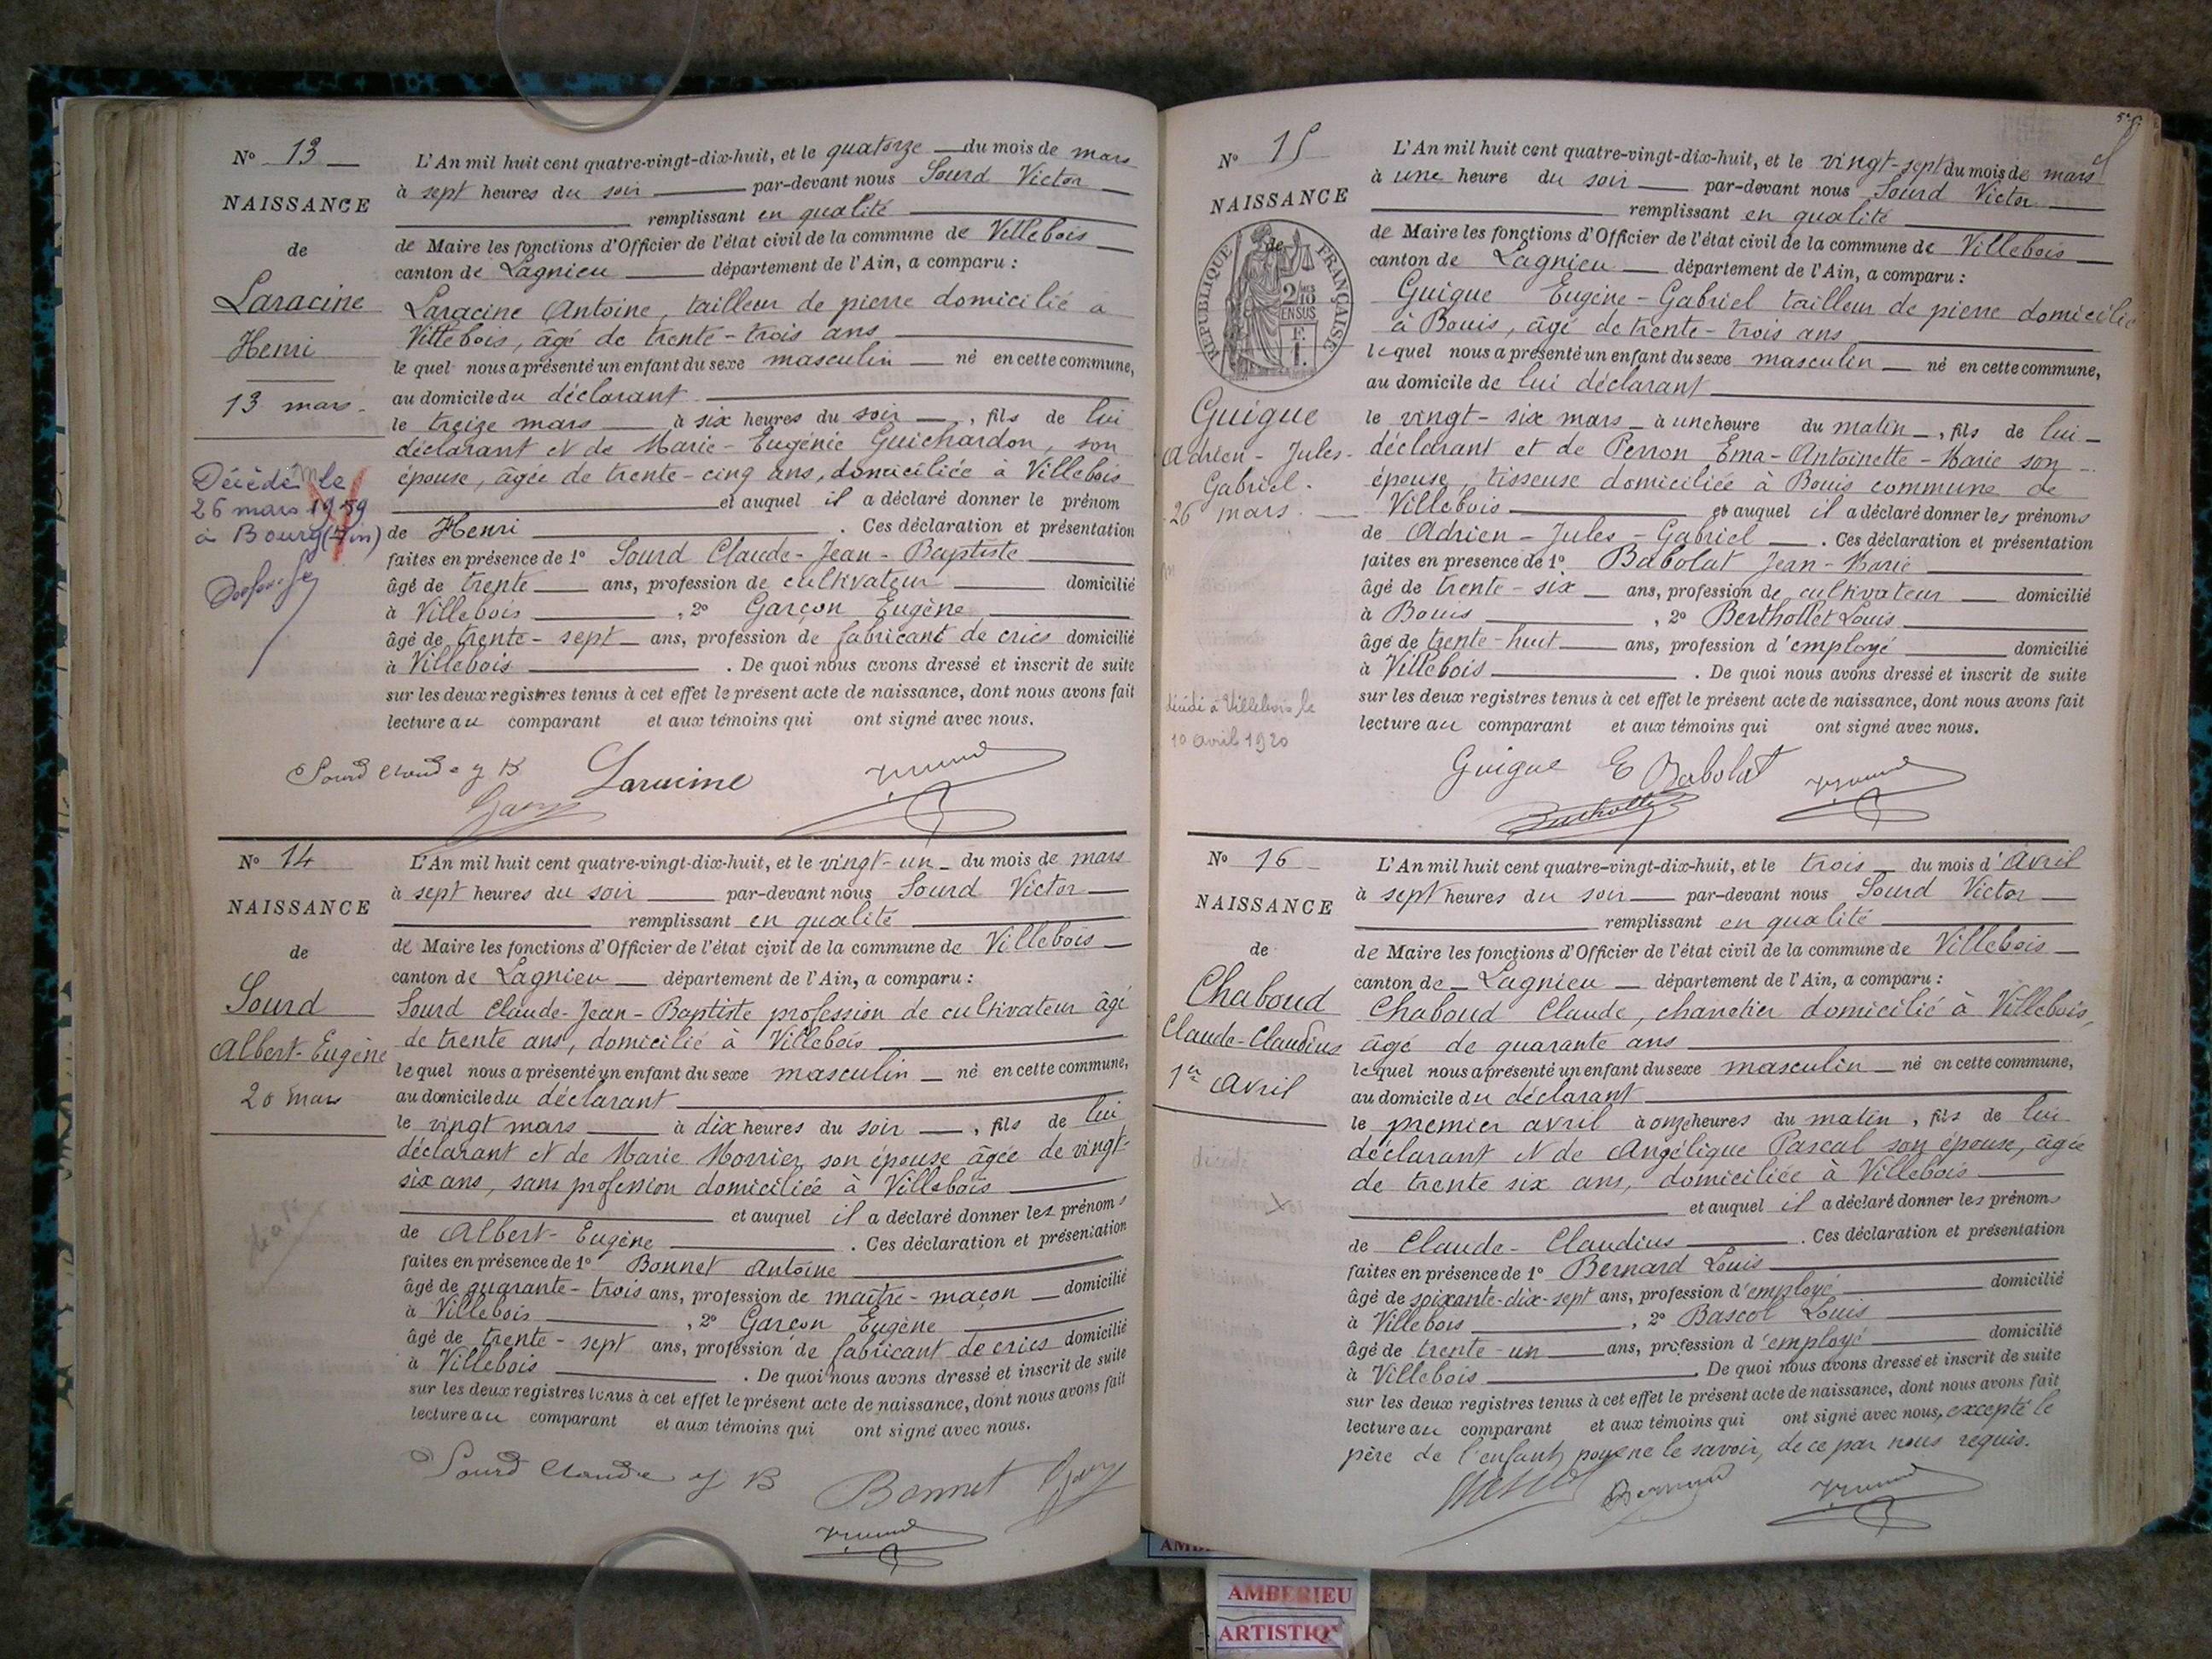 N° 13
NAISSANCE
de
Laracine
Henri
13 mars
Décédé le
26 mars 1959
à Bourg (Ain)
L'An mil huit cent quatre-vingt-dix-huit, et le quatorze du mois de mars
à sept heures du soir par-devant nous Sourd Victor
remplissant en qualité
de Maire les fonctions d'Officier de l'état civil de la commune de Villebois
canton de Lagnieu département de l'Ain, a comparu :
Laracine Antoine, tailleur de pierre domicilié a
Villebois, âgé de trente-trois ans
lequel nous a présenté un enfant du sexe masculin né en cette commune,
au domicile du déclarant
le treize mars à six heures du soir, fils de lui
déclarant et de Marie-Eugénie Guichardon, son
épouse, âgée de trente-cinq ans, domiciliée à Villebois
et auquel il a déclaré donner le prénom
de Henri. Ces déclaration et présentation
faites en présence de 1° Sourd Claude-Jean-Baptiste
âgé de trente ans, profession de cultivateur domicilié
à Villebois, 2° Garçon Eugène
âgé de trente-sept ans, profession de fabricant de crics domicilié
à Villebois. De quoi nous avons dressé et inscrit de suite
sur les deux registres tenus à cet effet le présent acte de naissance, dont nous avons fait
lecture au comparant et aux témoins qui ont signé avec nous.
Sourd Claude J B Laracine
N° 14
NAISSANCE
de
Sourd
Albert-Eugène
20 mars
L'An mil huit cent quatre-vingt-dix-huit, et le vingt-un du mois de mars
à sept heures du soir par-devant nous Sourd Victor
remplissant en qualité
de Maire les fonctions d'Officier de l'état civil de la commune de Villebois
canton de Lagnieu département de l'Ain, a comparu :
Sourd Claude-Jean-Baptiste profession de cultivateur âgé
de trente ans, domicilié à Villebois
lequel nous a présenté un enfant du sexe masculin né en cette commune,
au domicile du déclarant
le vingt mars à dix heures du soir, fils de lui
déclarant et de Marie Morrier son épouse âgée de vingt-
six ans, sans profession domiciliée à Villebois
et auquel il a déclaré donner les prénoms
de Albert-Eugène. Ces déclaration et présentation
faites en présence de 1° Bonnet Antoine
âgé de quarante-trois ans, profession de maître-maçon domicilié
à Villebois, 2° Garçon Eugène
âgé de trente-sept ans, profession de fabricant de crics domicilié
à Villebois. De quoi nous avons dressé et inscrit de suite
sur les deux registres tenus à cet effet le présent acte de naissance, dont nous avons fait
lecture au comparant et aux témoins qui ont signé avec nous.
Sourd Claude J B Bonnet
N° 15
NAISSANCE
de
RÉPUBLIQUE FRANÇAISE
2/10
EN SUS
Guigue
Adrien-Jules-
Gabriel.
26 mars.
décédé à Villebois le
10 avril 1920
L'An mil huit cent quatre-vingt-dix-huit, et le vingt-sept du mois de mars
à une heure du soir par-devant nous Sourd Victor
remplissant en qualité
de Maire les fonctions d'Officier de l'état civil de la commune de Villebois
canton de Lagnieu département de l'Ain, a comparu :
Guigue Eugène-Gabriel tailleur de pierre domicilié
à Bouis, âgé de trente-trois ans
lequel nous a présenté un enfant du sexe masculin né en cette commune,
au domicile de lui déclarant
le vingt-six mars à une heure du matin, fils de lui
déclarant et de Perron Ema-Antoinette-Marie son
épouse, tisseuse domiciliée à Bouis commune de
Villebois et auquel il a déclaré donner les prénoms
de Adrien-Jules-Gabriel. Ces déclaration et présentation
faites en présence de 1° Babolat Jean-Marie
âgé de trente-six ans, profession de cultivateur domicilié
à Bouis, 2° Berthollet Louis
âgé de trente-huit ans, profession d'employé domicilié
à Villebois. De quoi nous avons dressé et inscrit de suite
sur les deux registres tenus à cet effet le présent acte de naissance, dont nous avons fait
lecture au comparant et aux témoins qui ont signé avec nous.
Guigue E Babolat
N° 16
NAISSANCE
de
Chaboud
Claude-Claudius
1er Avril
décédé
L'An mil huit cent quatre-vingt-dix-huit, et le trois du mois d'Avril
à sept heures du soir par-devant nous Sourd Victor
remplissant en qualité
de Maire les fonctions d'Officier de l'état civil de la commune de Villebois
canton de Lagnieu département de l'Ain, a comparu :
Chaboud Claude, charretier domicilié à Villebois,
âgé de quarante ans
lequel nous a présenté un enfant du sexe masculin né en cette commune,
au domicile du déclarant
le premier avril à onze heures du matin, fils de lui
déclarant et de Angélique Pascal son épouse, âgée
de trente six ans, domiciliée à Villebois
et auquel il a déclaré donner les prénoms
de Claude-Claudius. Ces déclaration et présentation
faites en présence de 1° Bernard Louis
âgé de soixante-dix-sept ans, profession d'employé domicilié
à Villebois, 2° Bascol Louis
âgé de trente-un ans, profession d'employé domicilié
à Villebois. De quoi nous avons dressé et inscrit de suite
sur les deux registres tenus à cet effet le présent acte de naissance, dont nous avons fait
lecture au comparant et aux témoins qui ont signé avec nous, excepté le
père de l'enfant, pour ne le savoir, de ce par nous requis.
Bernard
AMBERIEU
ARTISTIQ